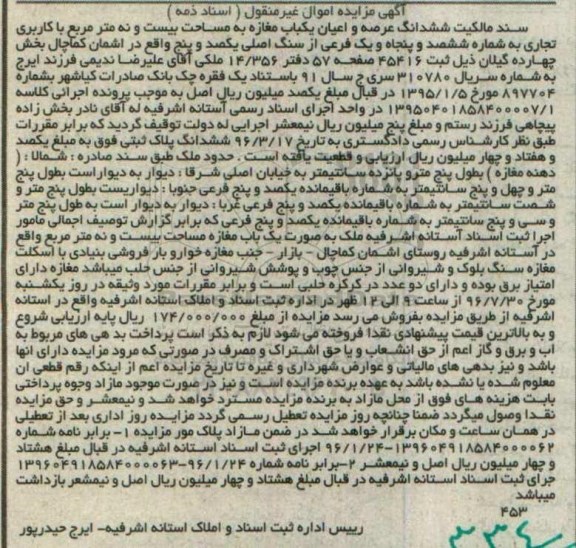 آگهی مزایده اموال غیرمنقول ( اسناد ذمه )
سـند مالکیت ششدانگ عرصه و اعیان یکباب مغازه به مساحت بیست و نه متر مربع با کاربری
تجاری به شماره ششصد و پنجاه و یک فرعی از سنگ اصلی یکصد و پنج واقع در اشمان کماچال بخش
چهارده گیلان ذیل ثبت ۴۵۴۱۶ صفحه ۵۷ دفتر ۱۴/۳۵۶ ملکی آقای علیرضا ندیمی فرزند ایرج
به شماره سریال ۳۱۰۷۸۰ سری ج سال ۹۱ باستناد یک فقره چک بانک صادرات کیاشهر بشماره
۸۹۷۷۰۴ مورخ ۱۳۹۵/۱/۵ در قبال مبلغ یکصد میلیون ریال اصل به موجب پرونده اجرائی کلاسه
۱۳۹۵۰۴۰۱۸۵۸۴۰۰۰۰۰۷/۱ در واحد اجرای اسناد رسمی آستانه اشرفیه له آقای نادر بخش زاده
پیچاهی فرزند رستم و مبلغ پنج میلیون ریال نیمعشر اجرایی له دولت توقیف گردید که برابر مقررات
طبق نظر کارشناس رسمی دادگستری به تاریخ ۹۶/۳/۱۷ ششدانگ پلاک ثبتی فوق به مبلغ یکصد
و هفتاد و چهار میلیون ریال ارزیابی و قطعیت یافته است . حدود ملک طبق سند صادره : شمالا : (
دهنه مغازه ) بطول پنج مترو پانزده سـانتیمتر به خیابان اصلی شرقا : دیوار به دیوار است بطول پنج
متر و چهل و پنج سـانتیمتر به شماره باقیمانده یکصد و پنج فرعی جنوبا : دیواریست بطول پنج متر و
شصت سـانتیمتر به شماره باقیمانده یکصد و پنج فرعی غربا : دیوار به دیوار است به طول پنج متر
و سی و پنج سانتیمتر به شماره باقیمانده یکصد و پنج فرعی که برابر گزارش توصیف اجمالی مامور
اجرا ثبت اسناد آستانه اشرفیه ملک به صورت یک باب مغازه مساحت بیست و نه متر مربع واقع
در آستانه اشرفیه روستای اشمان کماچال - بازار - جنب مغازه خوارو بار فروشی بنیادی با اسکلت
مغازه سنگ بلوک و شیروانی از جنس چوب و پوشش شیروانی از جنس حلب میباشد مغازه دارای
امتیاز برق بوده و دارای دو عدد در کرکره حلبی است و برابر مقررات مورد وثیقه در روز یکشنبه
مورخ ۹۶/۷/۳۰ از ساعت ۹ الی ۱۲ ظهر در اداره ثبت اسناد و املاک استانه اشرفیه واقع در استانه
اشرفیه از طریق مزایده بفروش می رسد مزایده از مبلغ ۱۷۴/۰۰۰/۰۰۰ ریال پایه ارزیابی شروع
و به بالاترین قیمت پیشنهادی نقدا فروخته می شود لازم به ذکر است پرداخت بد هی های مربوط به
اب و برق و گاز اعم از حق انشعاب و یا حق اشـتراک و مصرف در صورتی که مرود مزایده دارای انها
باشد و نیز بدهی های مالیاتی و عوارض شهرداری و غیره تا تاریخ مزایده اعم از اینکه رقم قطعی ان
معلوم شده یا نشده باشد به عهده برنده مزایده است و نیز در صورت موجود مازاد وجوه پرداختی
بابت هزینه های فوق از محل مازاد به برنده مزایده مسترد خواهد شـد و نیمعشر و حق مزایده
نقدا وصول میگردد ضمنا چنانچه روز مزایده تعطیل رسمی گردد مزایده روز اداری بعد از تعطیلی
در همان ساعت و مکان برقرار خواهد شـد در ضمن مـازاد پلاک مور مزایده ۱- برابر نامه شماره
۱۳۹۶۰۴۹۱۸۵۸۴۰۰۰۰۶۲-۹۶/۱/۲۴ اجرای ثبت اسـناد استانه اشرفیه در قبال مبلغ هشتاد
و چهار میلیون ریال اصل و نیمعشـر ۲-برابر نامه شماره ۹۶/۱/۲۴-۱۳۹۶۰۴۹۱۸۵۸۴۰۰۰۰۶۳
جرای ثبت اسناد اسـتانه اشرفیه در قبال مبلغ هشتاد و چهار میلیون ریال اصل و نیمشعر بازداشت
میباشد
۴۵۳
رییس اداره ثبت اسناد و املاک استانه اشرفیه- ایرج حیدرپور